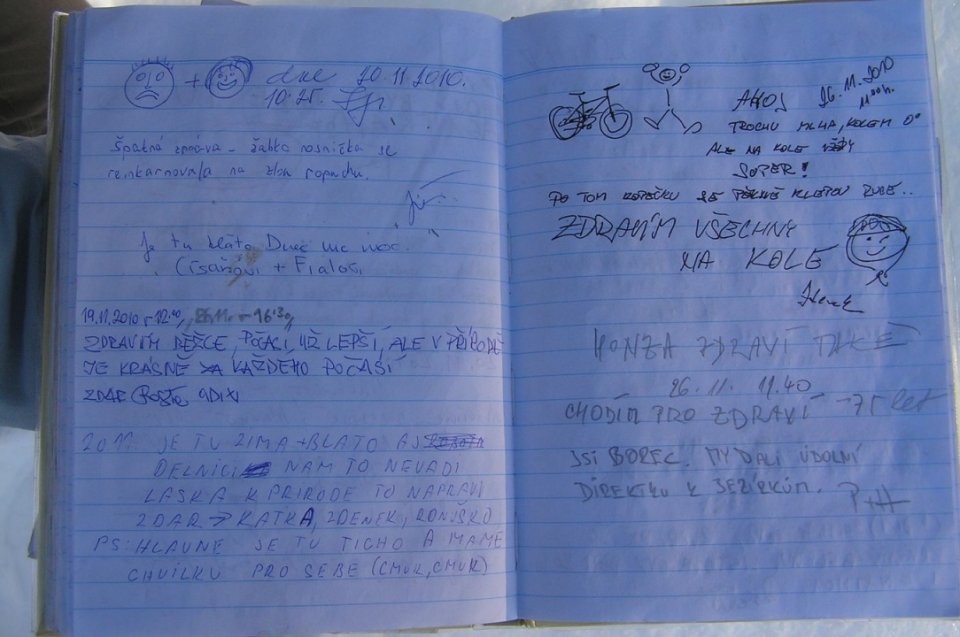 + dne 20.11.2010.
10.25.
Špatná zpráva - žabka rosnička se
reinkarnovala na zlou ropuchu.
Je tu bláto
Císařovi + Fialovi
19.11.2010 - 12.40, - 16:30,
ZDRAVÍM BĚŽCE, POČASÍ UŽ LEPŠÍ, ALE V PŘÍRODĚ
JE KRÁSNĚ ZA KAŽDÉHO POČASÍ
ZDAR
20 11. JE TU ZIMA + BLATO A
DELNICI NAM TO NEVADI
LASKA K PRIRODE TO NAPRAVI
ZDAR → KATKA, ZDENEK, RONJSKO
PS: HLAVNE JE TU TICHO A MAME
CHVILKU PRO SEBE (CMUK, CMUK)
AHOJ 26.11.2010
11 00 h.
TROCHU MLHA, KOLEM 0°
ALE NA KOLE VŽDY
SUPER!
PO TOM KOPEČKU SE PĚKNĚ
ZDRAVÍM VŠECHNY
NA KOLE
HONZA ZDRAVÍ TAKÉ
26.11. 11.40
CHODÍM PRO ZDRAVÍ → 75 let
JSI BOREC. MY DALI ÚDOLNÍ
DIREKTKU K JEZÍRKŮM.
P+H